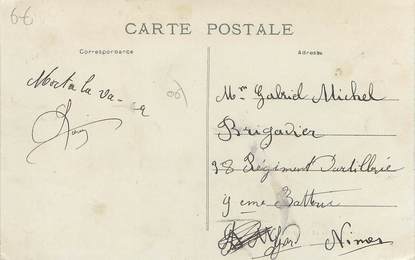 6€
CARTE POSTALE
Correspondance
Adresse
Mort à la va-
Mr Gabriel Michel
Brigadier
38 Régiment Dartillerie
9eme Batterie
Nimes